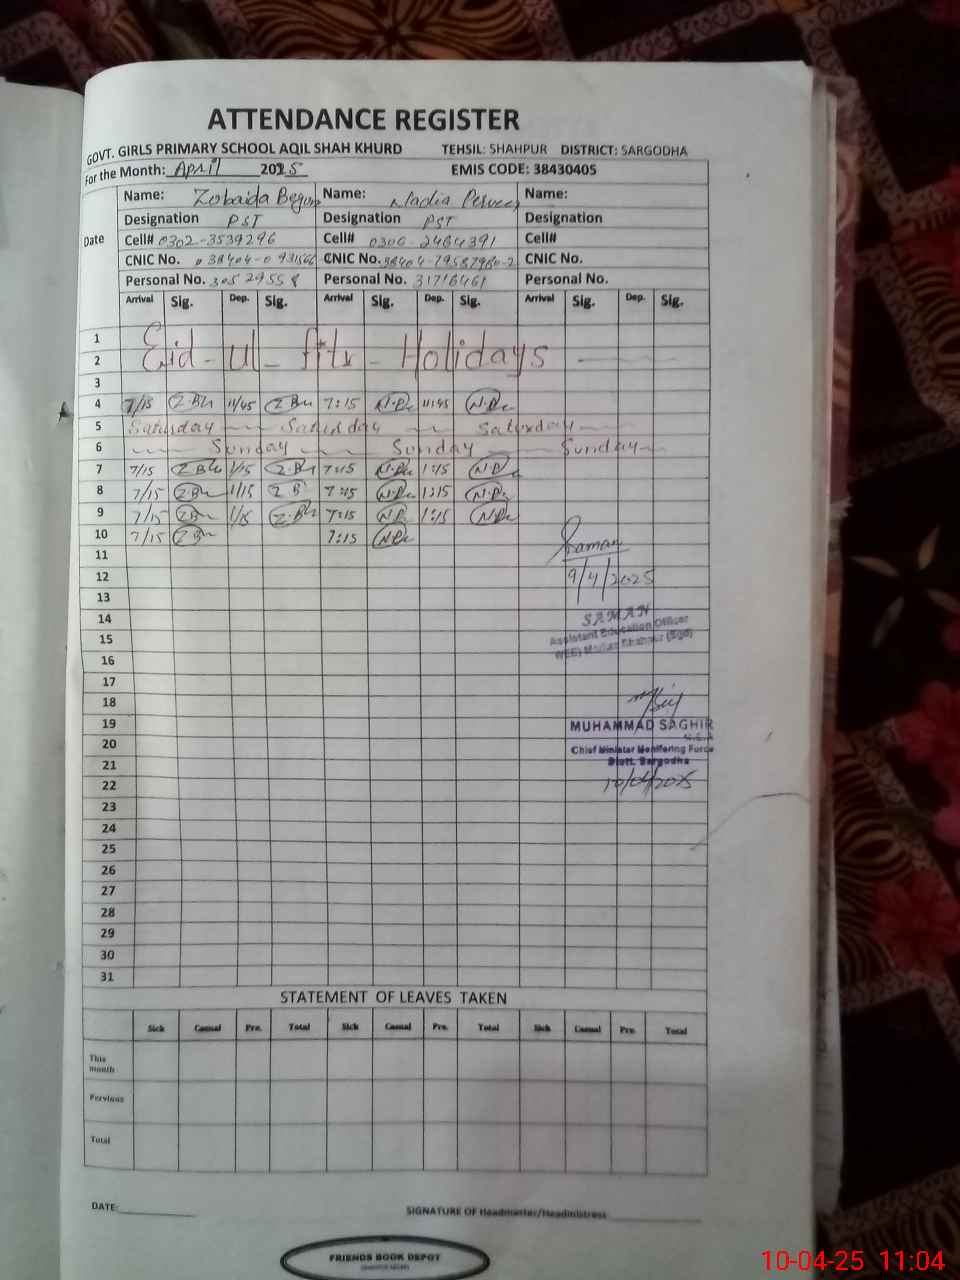 ATTENDANCE REGISTER
GOVT. GIRLS PRIMARY SCHOOL AQIL SHAH KHURD TEHSIL: SHAHPUR DISTRICT: SARGODHA
For the Month: April 2025 EMIS CODE: 38430405
Name: Zobaida Begum Name: Nadia Perveen Name:
Designation PST Designation PST Designation
Date
Cell# 0302-3539296 Cell# 0306-2464391 Cell#
CNIC No. CNIC No. 38404-79587980-2 CNIC No.
Personal No. 30529558 Personal No. 31716461 Personal No.
Arrival Sig. Dep. Sig. Arrival Sig. Dep. Sig. Arrival Sig. Dep. Sig.
1
2 Eid-ul-fitr-Holidays
3
4 7/15 11/45 7:15 11:45
5 Saturday Saturday Saturday
6 Sunday Sunday Sunday
7 7/15 1/15 7:15 1:15
8 7/15 1/15 7:15 1:15
9 7/15 1/15 7:15 1:15
10 7/15 7:15
Saman
11
12 9/4/2025
13
14 SAMAN
15 Assistant Education Officer
16 (WEE) Markaz Shahpur (Sgd)
17
18
19 MUHAMMAD SAGHIR
M.E.A
20 Chief Minister Monitoring Force
21 Distt. Sargodha
22 10/04/2025
23
24
25
26
27
28
29
30
31
STATEMENT OF LEAVES TAKEN
Sick Casual Pre. Total Sick Casual Pre. Total Sick Casual Pre. Total
This month
Pervious
Total
DATE: SIGNATURE OF Headmaster/Headmistress
FRIENDS BOOK DEPOT
10-04-25 11:04